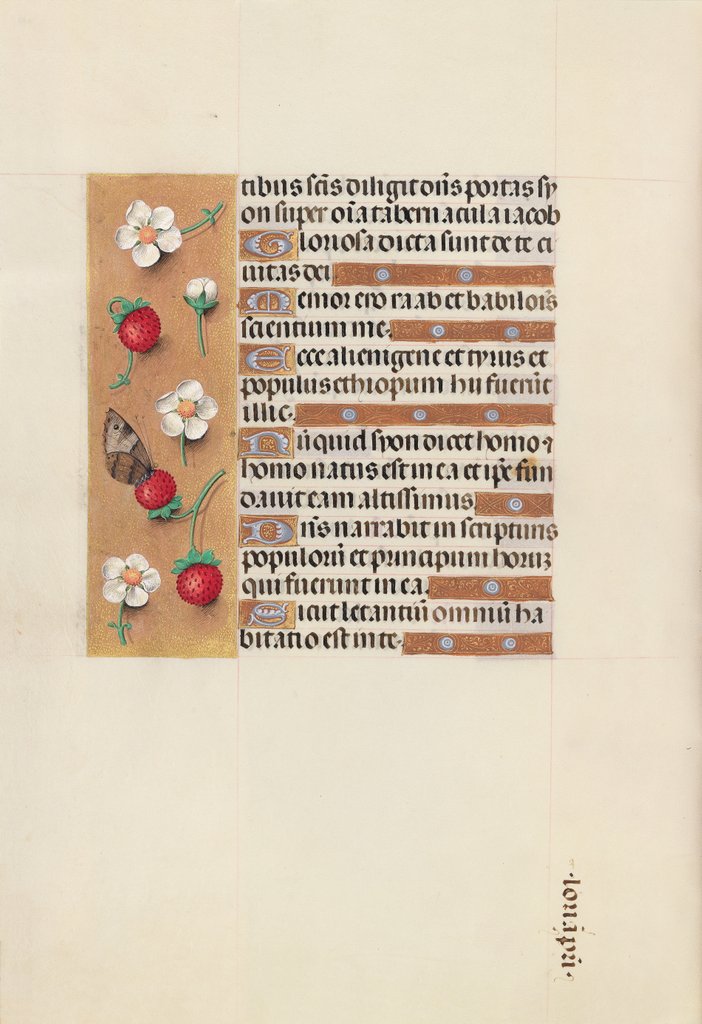 tibus scīs diligit dn̄s portas sy
on super oīa tabernacula iacob
Gloriosa dicta sunt de te ci
uitas dei
Memor ero raab et babiloīs
scientium me.
Ecce alienigene et tyrus et
populus ethiopum hii fuerūt
illic.
Nūquid syon dicet homo ⁊
homo natus est in ea et ip̄e fun
dauit eam altissimus
Dn̄s narrabit in scripturis
populorū et principum horuꝫ
qui fuerunt in ea.
Sicut letantiū omniū ha
bitatio est in te.